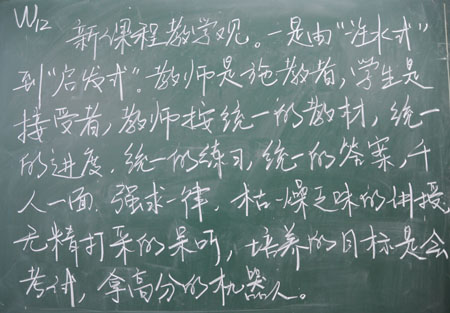 W12
新课程教学观。一是由“注水式”
到“启发式”。教师是施教者,学生是
接受者,教师按统一的教材,统一
的进度,统一的练习,统一的答案,千
人一面,强求一律,枯燥乏味的讲授,
无精打采的呆听,培养的目标是会
考试,拿高分的机器人。